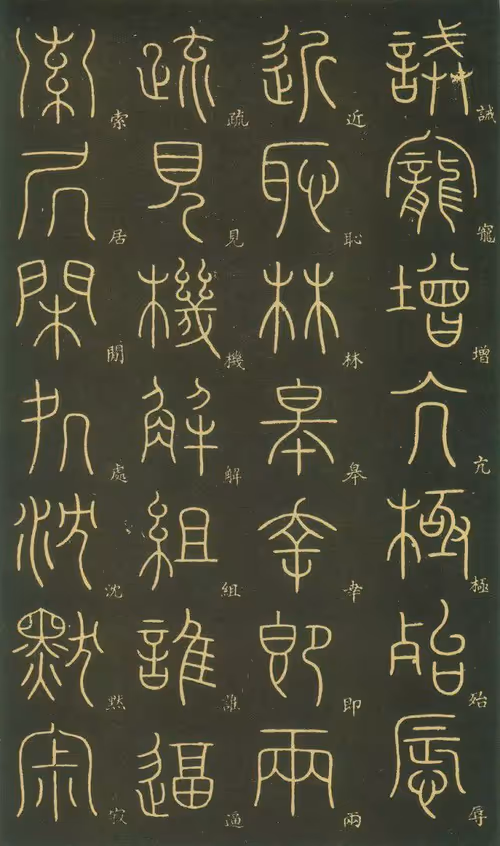 誡寵增亢極殆辱
誡寵增亢極殆辱
近恥林皋幸即兩
近恥林皋幸即兩
疏見機解組誰逼
疏見機解組誰逼
索居閒處沈默寂
索居閒處沈默寂